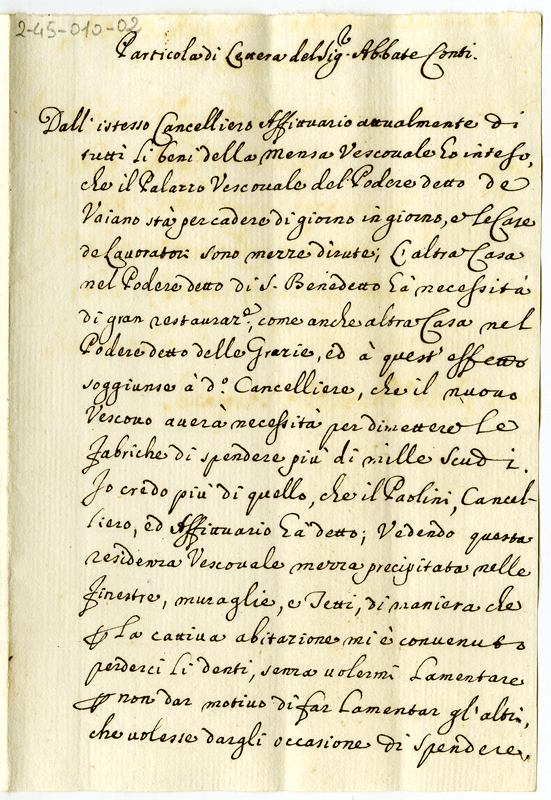 2-45-010-02
Particola di Lettera del Sig.r Abbate Conti.
Dall' istesso Cancelliero Affittuario attualmente di
tutti li beni della Mensa Vescovale hò inteso,
che il Palazzo Vescovale del Podere detto de
Vaiano stà per cadere di giorno in giorno, e le Case
de Lavoratori sono mezze dirute; L'altra Casa
nel Podere detto di S. Benedetto hà necessità
di gran restauraz.e, come anche altra Casa nel
Podere detto delle Grazie, ed à quest' effetto
soggiunse à d.o Cancelliere, che il nuovo
Vescovo averà necessità per dimettere le
fabriche di spendere più di mille scudi.
Io credo più di quello, che il Paolini, Cancel-
liero, ed Affittuario hà detto; Vedendo questa
residenza Vescovale mezza precipitata nelle
finestre, muraglie, e Tetti, di maniera che
ꝑ la cattiva abitazione mi è convenuto
perderci li denti, senza volermi lamentare
ꝑ non dar motivo di far lamentar gl'altri,
che volesse dargli occasione di spendere,